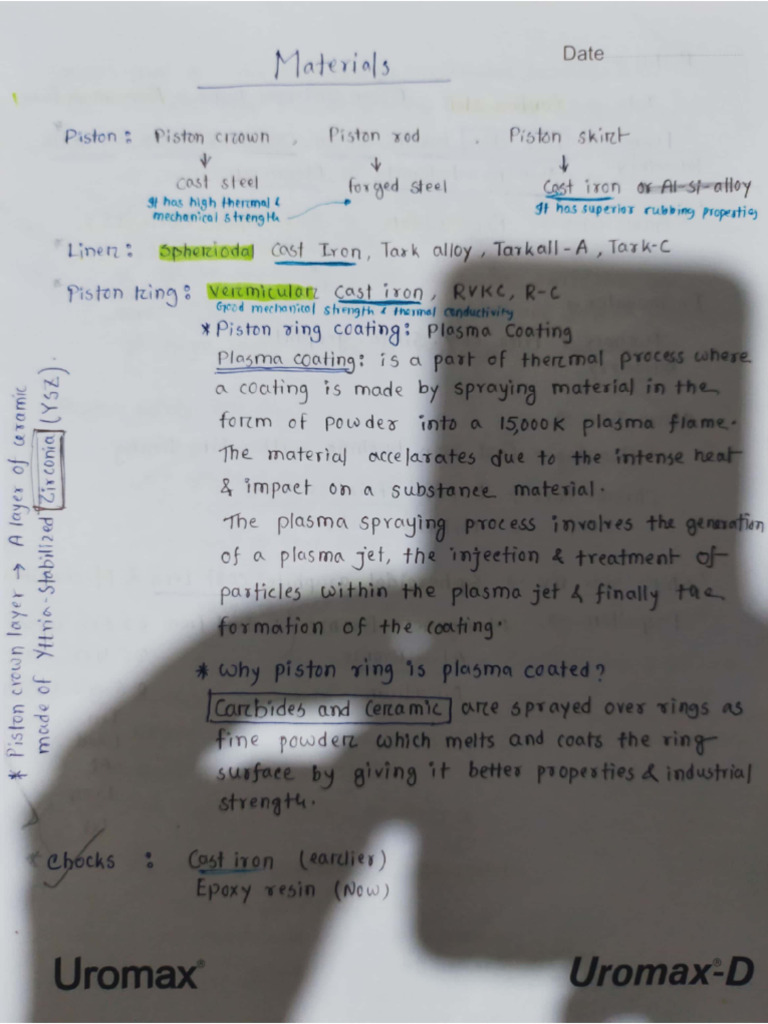 Date
Materials
Piston: Piston crown , Piston rod , Piston skirt
cast steel forged steel Cast iron or Al-si-alloy
It has high thermal &
mechanical strength
It has superior rubbing properties
Liner: Spheriodal Cast Iron, Tark alloy, Tarkall-A, Tark-C
Piston ring: Vermicular Cast iron, RVKC, R-C
Good mechanical strength & thermal conductivity
* Piston ring coating: Plasma Coating
Plasma coating: is a part of thermal process where
a coating is made by spraying material in the
form of powder into a 15,000K plasma flame.
The material accelarates due to the intense heat
& impact on a substance material.
The plasma spraying process involves the generation
of a plasma jet, the injection & treatment of
particles within the plasma jet & finally the
formation of the coating.
* Why piston ring is plasma coated?
Carbides and Ceramic are sprayed over rings as
fine powder which melts and coats the ring
surface by giving it better properties & industrial
strength.
* Piston crown layer → A layer of ceramic
made of Yttria-Stabilized Zirconia (YSZ).
* Chocks : Cast iron (earlier)
Epoxy resin (Now)
Uromax® Uromax®-D